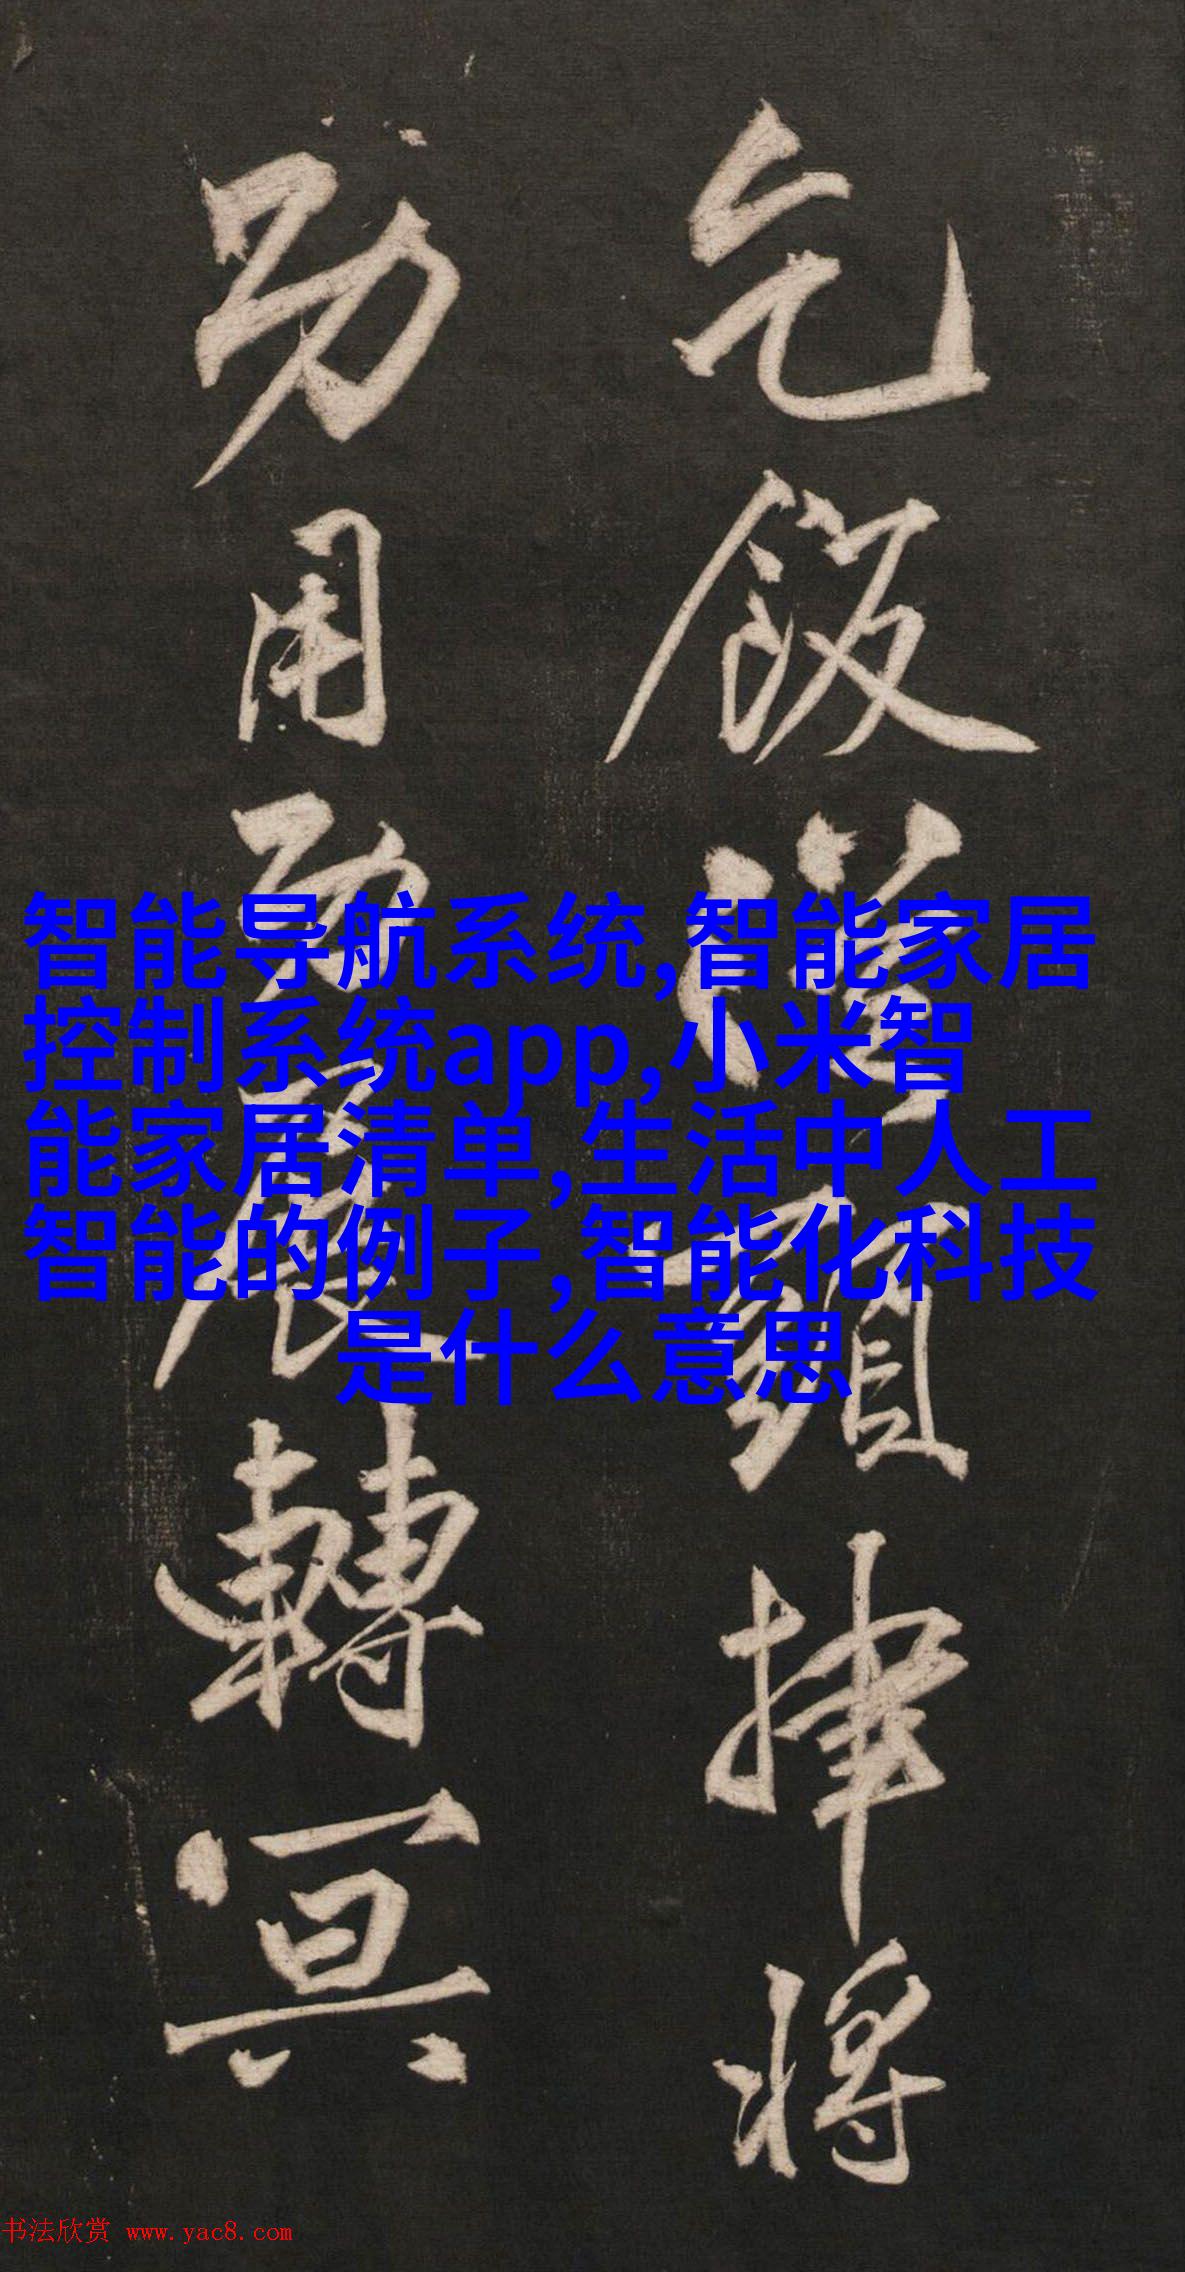 乞飯頭捧將
功用展轉冥
智能导航系统,智能家居
控制系统app,小米智
能家居清单,生活中人工
智能的例子,智能化科技
是什么意思
书法欣赏 www.yac8.com